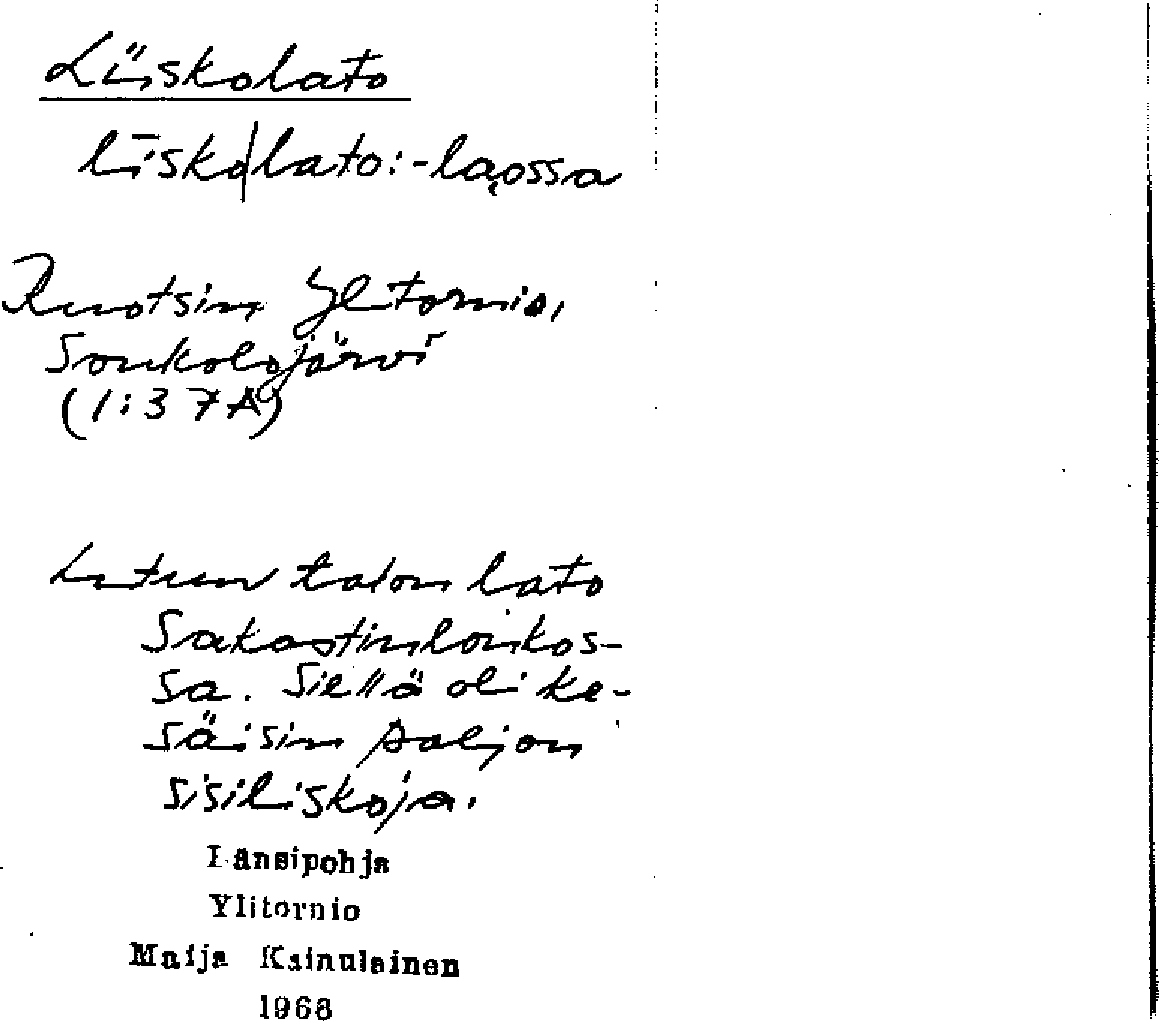 Liiskolato
līsko|lato: -laossa
Ruotsin Ylitornio,
Soukolojärvi
(1:3 7A)
talon lato
Sakastinloukos-
sa. Siellä oli ke-
säisin paljon
sisiliskoja.
Länsipohja
Ylitornio
Maija Kainulainen
1968